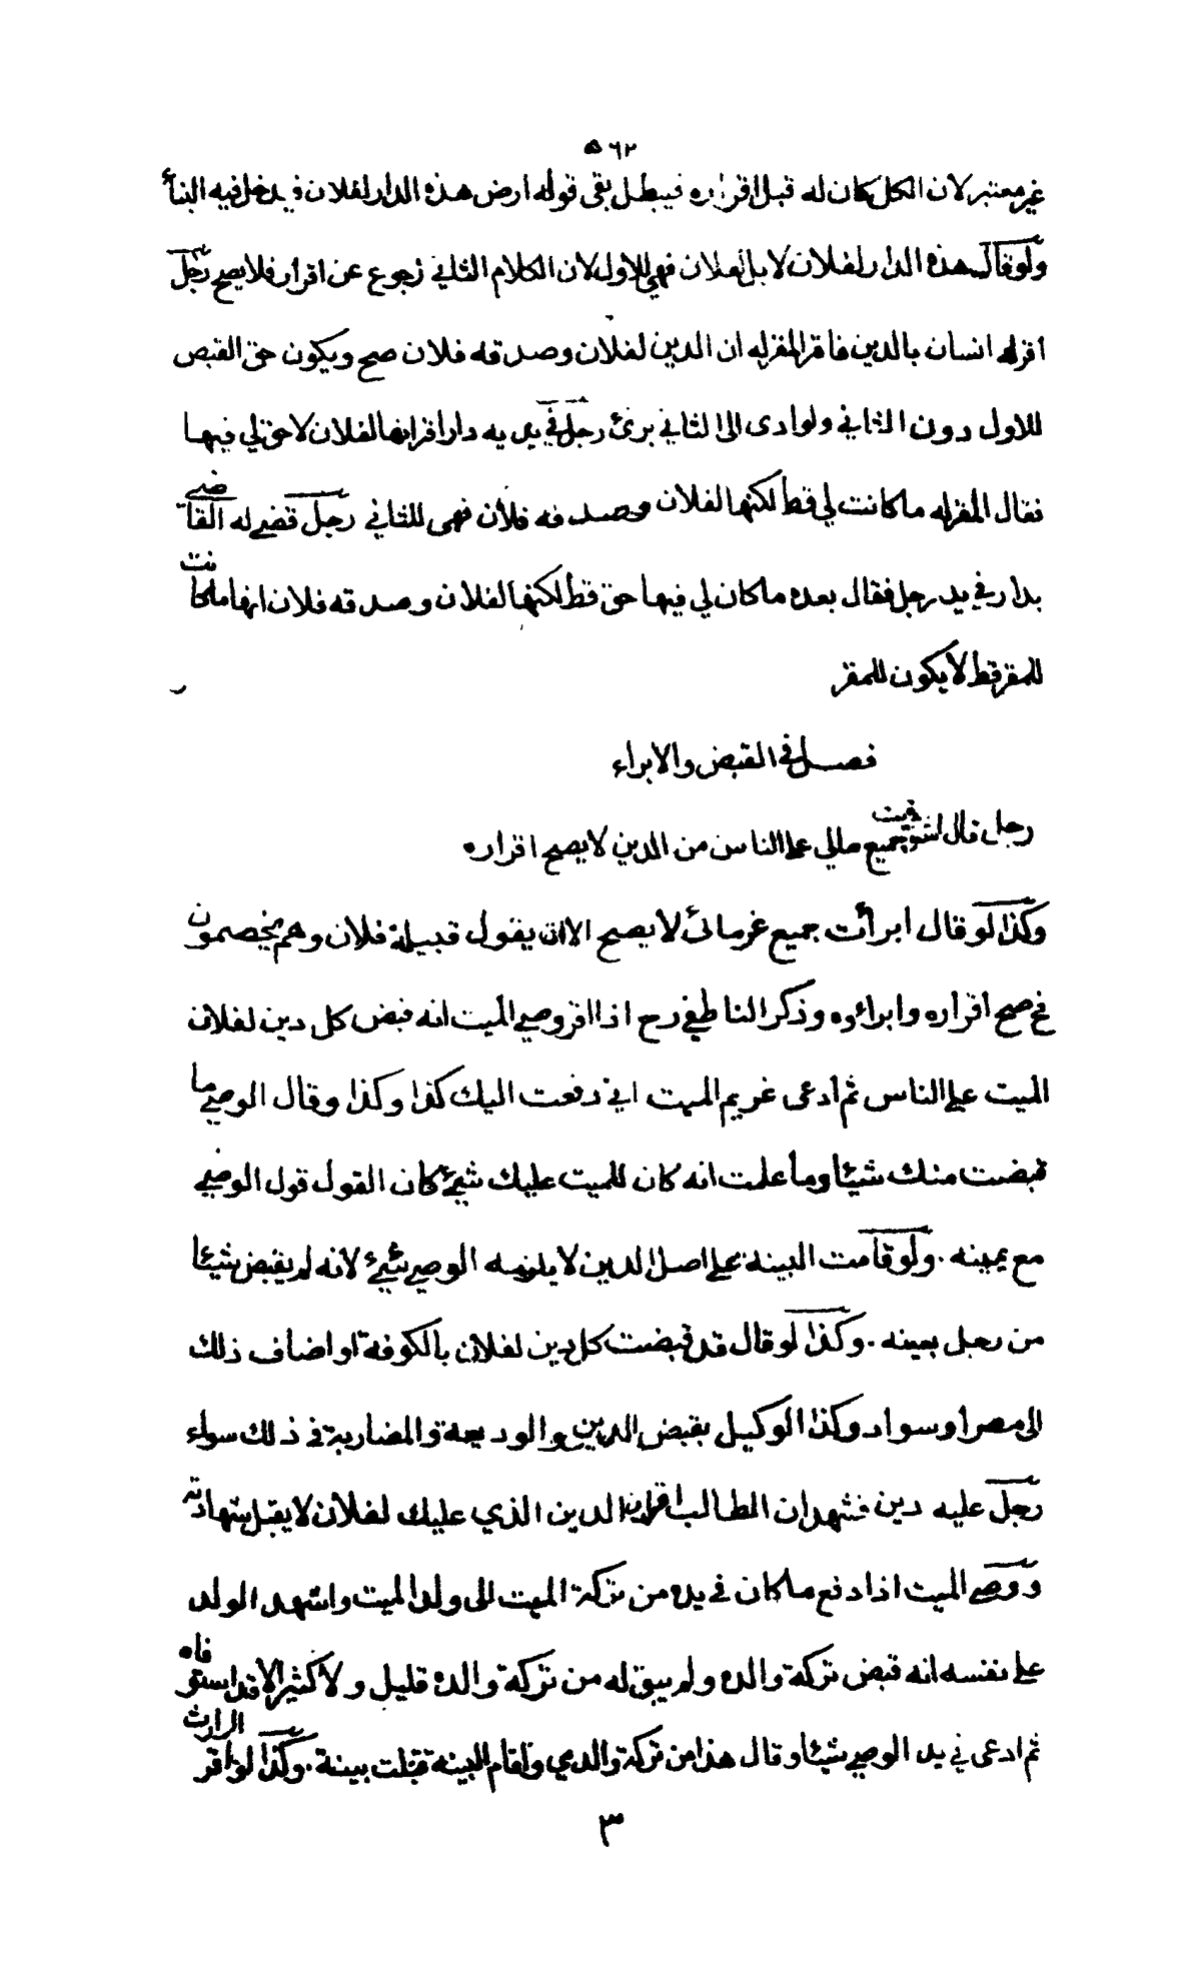 ٥٦٢
غير معتبر لان الكل كان له قبل اقراره فيبطل بقى قوله ارض هذه الدار لفلان فيدخل فيه البنأ
ولو قال هذه الدار لفلان لا بل لفلان فهى للاول لان الكلام الثاني رجوع عن اقرار فلا يصح رجل
اقر له انسان بالدين فاقر المقر له ان الدين لفلان وصدقه فلان صح ويكون حق القبض
للاول دون الثاني ولو ادى الى الثاني برئ رجل في يديه دار اقر انها لفلان لا حق لي فيها
فقال المقر له ما كانت لي قط لكنها لفلان وصدقه فلان فهى للثاني رجل قضى له القاضي
بدار في يد رجل فقال بعده ما كان لي فيها حق قط لكنها لفلان وصدقه فلان انها ما كانت
للمقر قط لا يكون للمقر
فصل في القبض والابراء
رجل قال استوفيت جميع مالي على الناس من الدين لا يصح اقراره
وكذا لو قال ابرأت جميع غرمائى لا يصح الا ان يقول قبيلة فلان وهم يخصمون
فح صح اقراره وابراؤه وذكر الناطفي رح اذا اقر وصي الميت انه قبض كل دين لفلان
الميت على الناس ثم ادعى غريم الميت اني دفعت اليك كذا وكذا وقال الوصي ما
قبضت منك شيئا وما علمت انه كان للميت عليك شيئ كان القول قول الوصي
مع يمينه. ولو قامت البينة على اصل الدين لا يلزمه الوصي شيئ لانه لم يقبض شيئا
من رجل بعينه. وكذا لو قال قد قبضت كل دين لفلان بالكوفة او اضاف ذلك
الى مصر او سواد وكذا الوكيل بقبض الدين والوديعة والمضاربة في ذلك سواء
رجل عليه دين فشهد ان الطالب اقر ان الدين الذي عليك لفلان لا يقبل شهادته
ووصي الميت اذا دفع ما كان في يده من تركة الميت الى ولد الميت واشهد الولد
على نفسه انه قبض تركة والده ولم يبق له من تركة والده قليل ولا كثير الا قد استوفاه
ثم ادعى في يد الوصي شيئا وقال هذا من تركة والدي واقام البينه قبلت بينة. وكذا لو اقر الوارث
٣